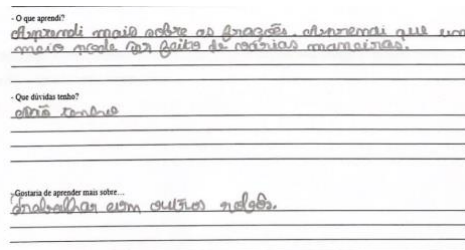 - O que aprendi?
Aprendi mais sobre as frações. Aprendi que um
meio pode ser feito de várias maneiras.
- Que dúvidas tenho?
Não tenho
- Gostaria de aprender mais sobre...
Trabalhar com outros